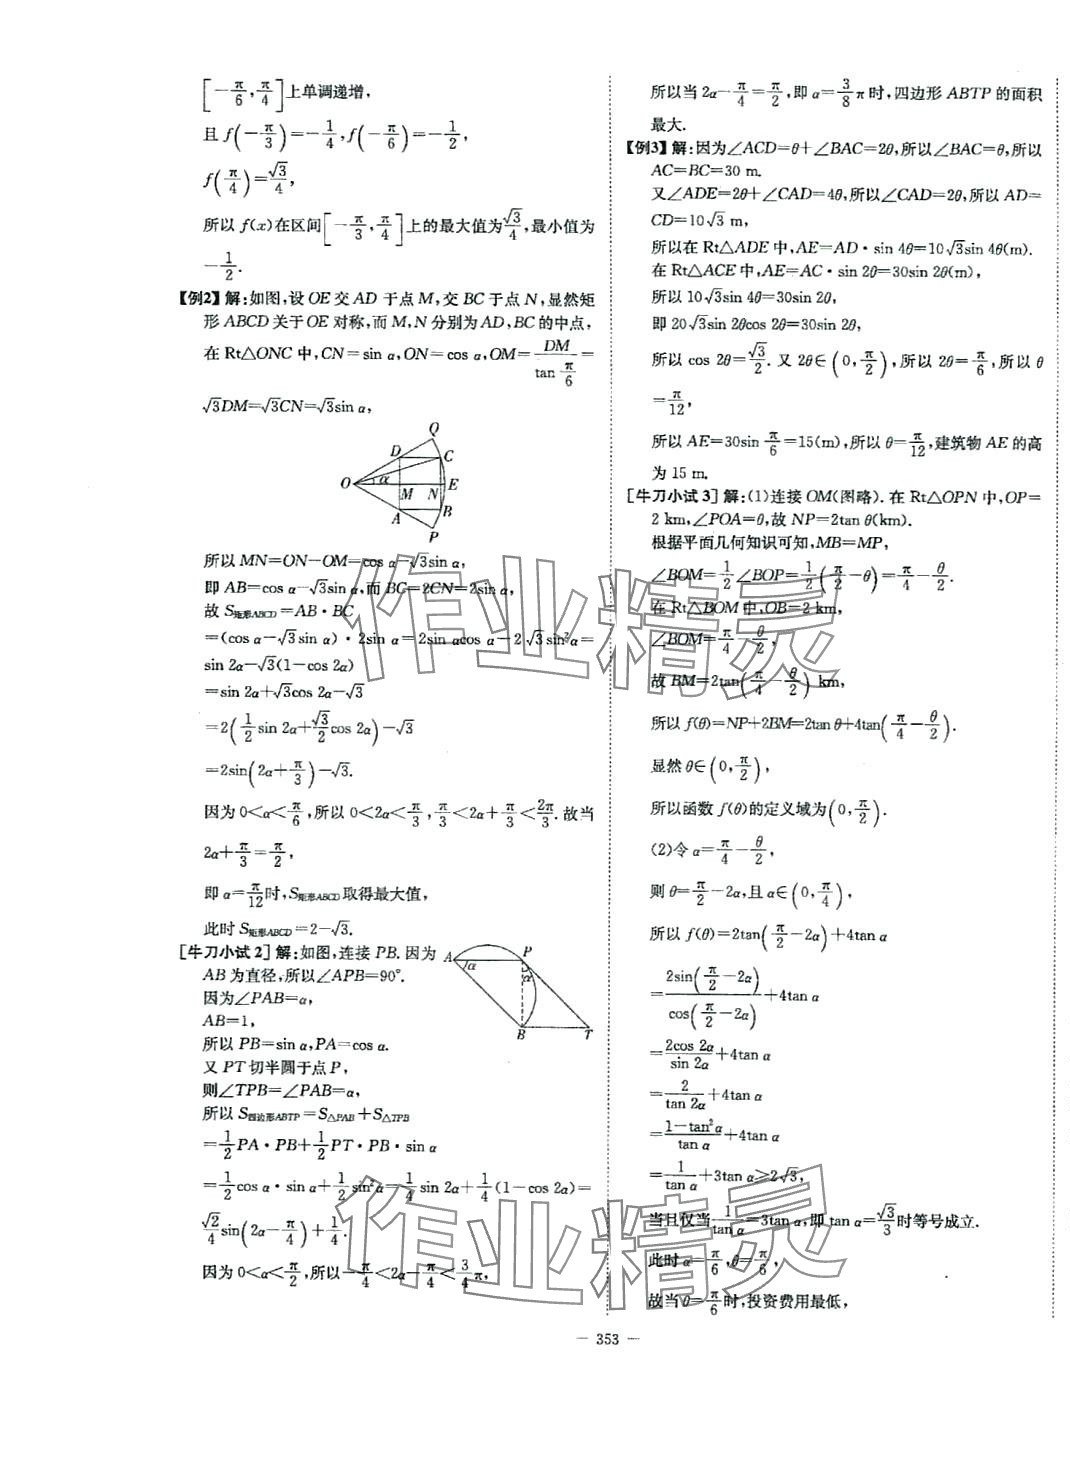 [-π/6, π/4]上单调递增,
且 f(-π/3)=-1/4, f(-π/6)=-1/2,
f(π/4)=√3/4,
所以 f(x)在区间[-π/3, π/4]上的最大值为√3/4,最小值为
-1/2.
【例2】解:如图,设 OE 交 AD 于点 M,交 BC 于点 N,显然矩
形 ABCD 关于 OE 对称,而 M,N 分别为 AD,BC 的中点,
在 Rt△ONC 中,CN=sin α,ON=cos α,OM=DM/tan π/6=
√3DM=√3CN=√3sin α,
Q
D C
O α M N E
A B
P
所以 MN=ON-OM=cos α-√3sin α,
即 AB=cos α-√3sin α,而 BC=2CN=2sin α,
故 S矩形ABCD=AB·BC
=(cos α-√3sin α)·2sin α=2sin αcos α-2√3sin²α=
sin 2α-√3(1-cos 2α)
=sin 2α+√3cos 2α-√3
=2(1/2 sin 2α+√3/2 cos 2α)-√3
=2sin(2α+π/3)-√3.
因为 0<α<π/6,所以 0<2α<π/3,π/3<2α+π/3<2π/3.故当
2α+π/3=π/2,
即 α=π/12时,S矩形ABCD取得最大值,
此时 S矩形ABCD=2-√3.
[牛刀小试 2]解:如图,连接 PB.因为
AB 为直径,所以∠APB=90°.
因为∠PAB=α,
AB=1,
所以 PB=sin α,PA=cos α.
又 PT 切半圆于点 P,
则∠TPB=∠PAB=α,
A α P α
B T
所以 S四边形ABTP=S△PAB+S△TPB
=1/2 PA·PB+1/2 PT·PB·sin α
=1/2 cos α·sin α+1/2 sin²α=1/4 sin 2α+1/4(1-cos 2α)=
√2/4 sin(2α-π/4)+1/4.
因为 0<α<π/2,所以-π/4<2α-π/4<3/4π,
所以当 2α-π/4=π/2,即 α=3/8π时,四边形 ABTP 的面积
最大.
【例3】解:因为∠ACD=θ+∠BAC=2θ,所以∠BAC=θ,所以
AC=BC=30 m.
又∠ADE=2θ+∠CAD=4θ,所以∠CAD=2θ,所以 AD=
CD=10√3 m,
所以在 Rt△ADE 中,AE=AD·sin 4θ=10√3sin 4θ(m).
在 Rt△ACE 中,AE=AC·sin 2θ=30sin 2θ(m),
所以 10√3sin 4θ=30sin 2θ,
即 20√3sin 2θcos 2θ=30sin 2θ,
所以 cos 2θ=√3/2.又 2θ∈(0,π/2),所以 2θ=π/6,所以 θ
=π/12,
所以 AE=30sin π/6=15(m),所以 θ=π/12,建筑物 AE 的高
为 15 m.
[牛刀小试 3]解:(1)连接 OM(图略).在 Rt△OPN 中,OP=
2 km,∠POA=θ,故 NP=2tan θ(km).
根据平面几何知识可知,MB=MP,
∠BOM=1/2∠BOP=1/2(π/2-θ)=π/4-θ/2.
在 Rt△BOM 中,OB=2 km,
∠BOM=π/4-θ/2,
故 BM=2tan(π/4-θ/2) km,
所以 f(θ)=NP+2BM=2tan θ+4tan(π/4-θ/2).
显然 θ∈(0,π/2),
所以函数 f(θ)的定义域为(0,π/2).
(2)令 α=π/4-θ/2,
则 θ=π/2-2α,且 α∈(0,π/4),
所以 f(θ)=2tan(π/2-2α)+4tan α
=2sin(π/2-2α)/cos(π/2-2α)+4tan α
=2cos 2α/sin 2α+4tan α
=2/tan 2α+4tan α
=1-tan²α/tan α+4tan α
=1/tan α+3tan α≥2√3,
当且仅当1/tan α=3tan α,即 tan α=√3/3时等号成立.
此时 α=π/6,θ=π/6,
故当 θ=π/6时,投资费用最低,
— 353 —
作业精灵
作业精灵